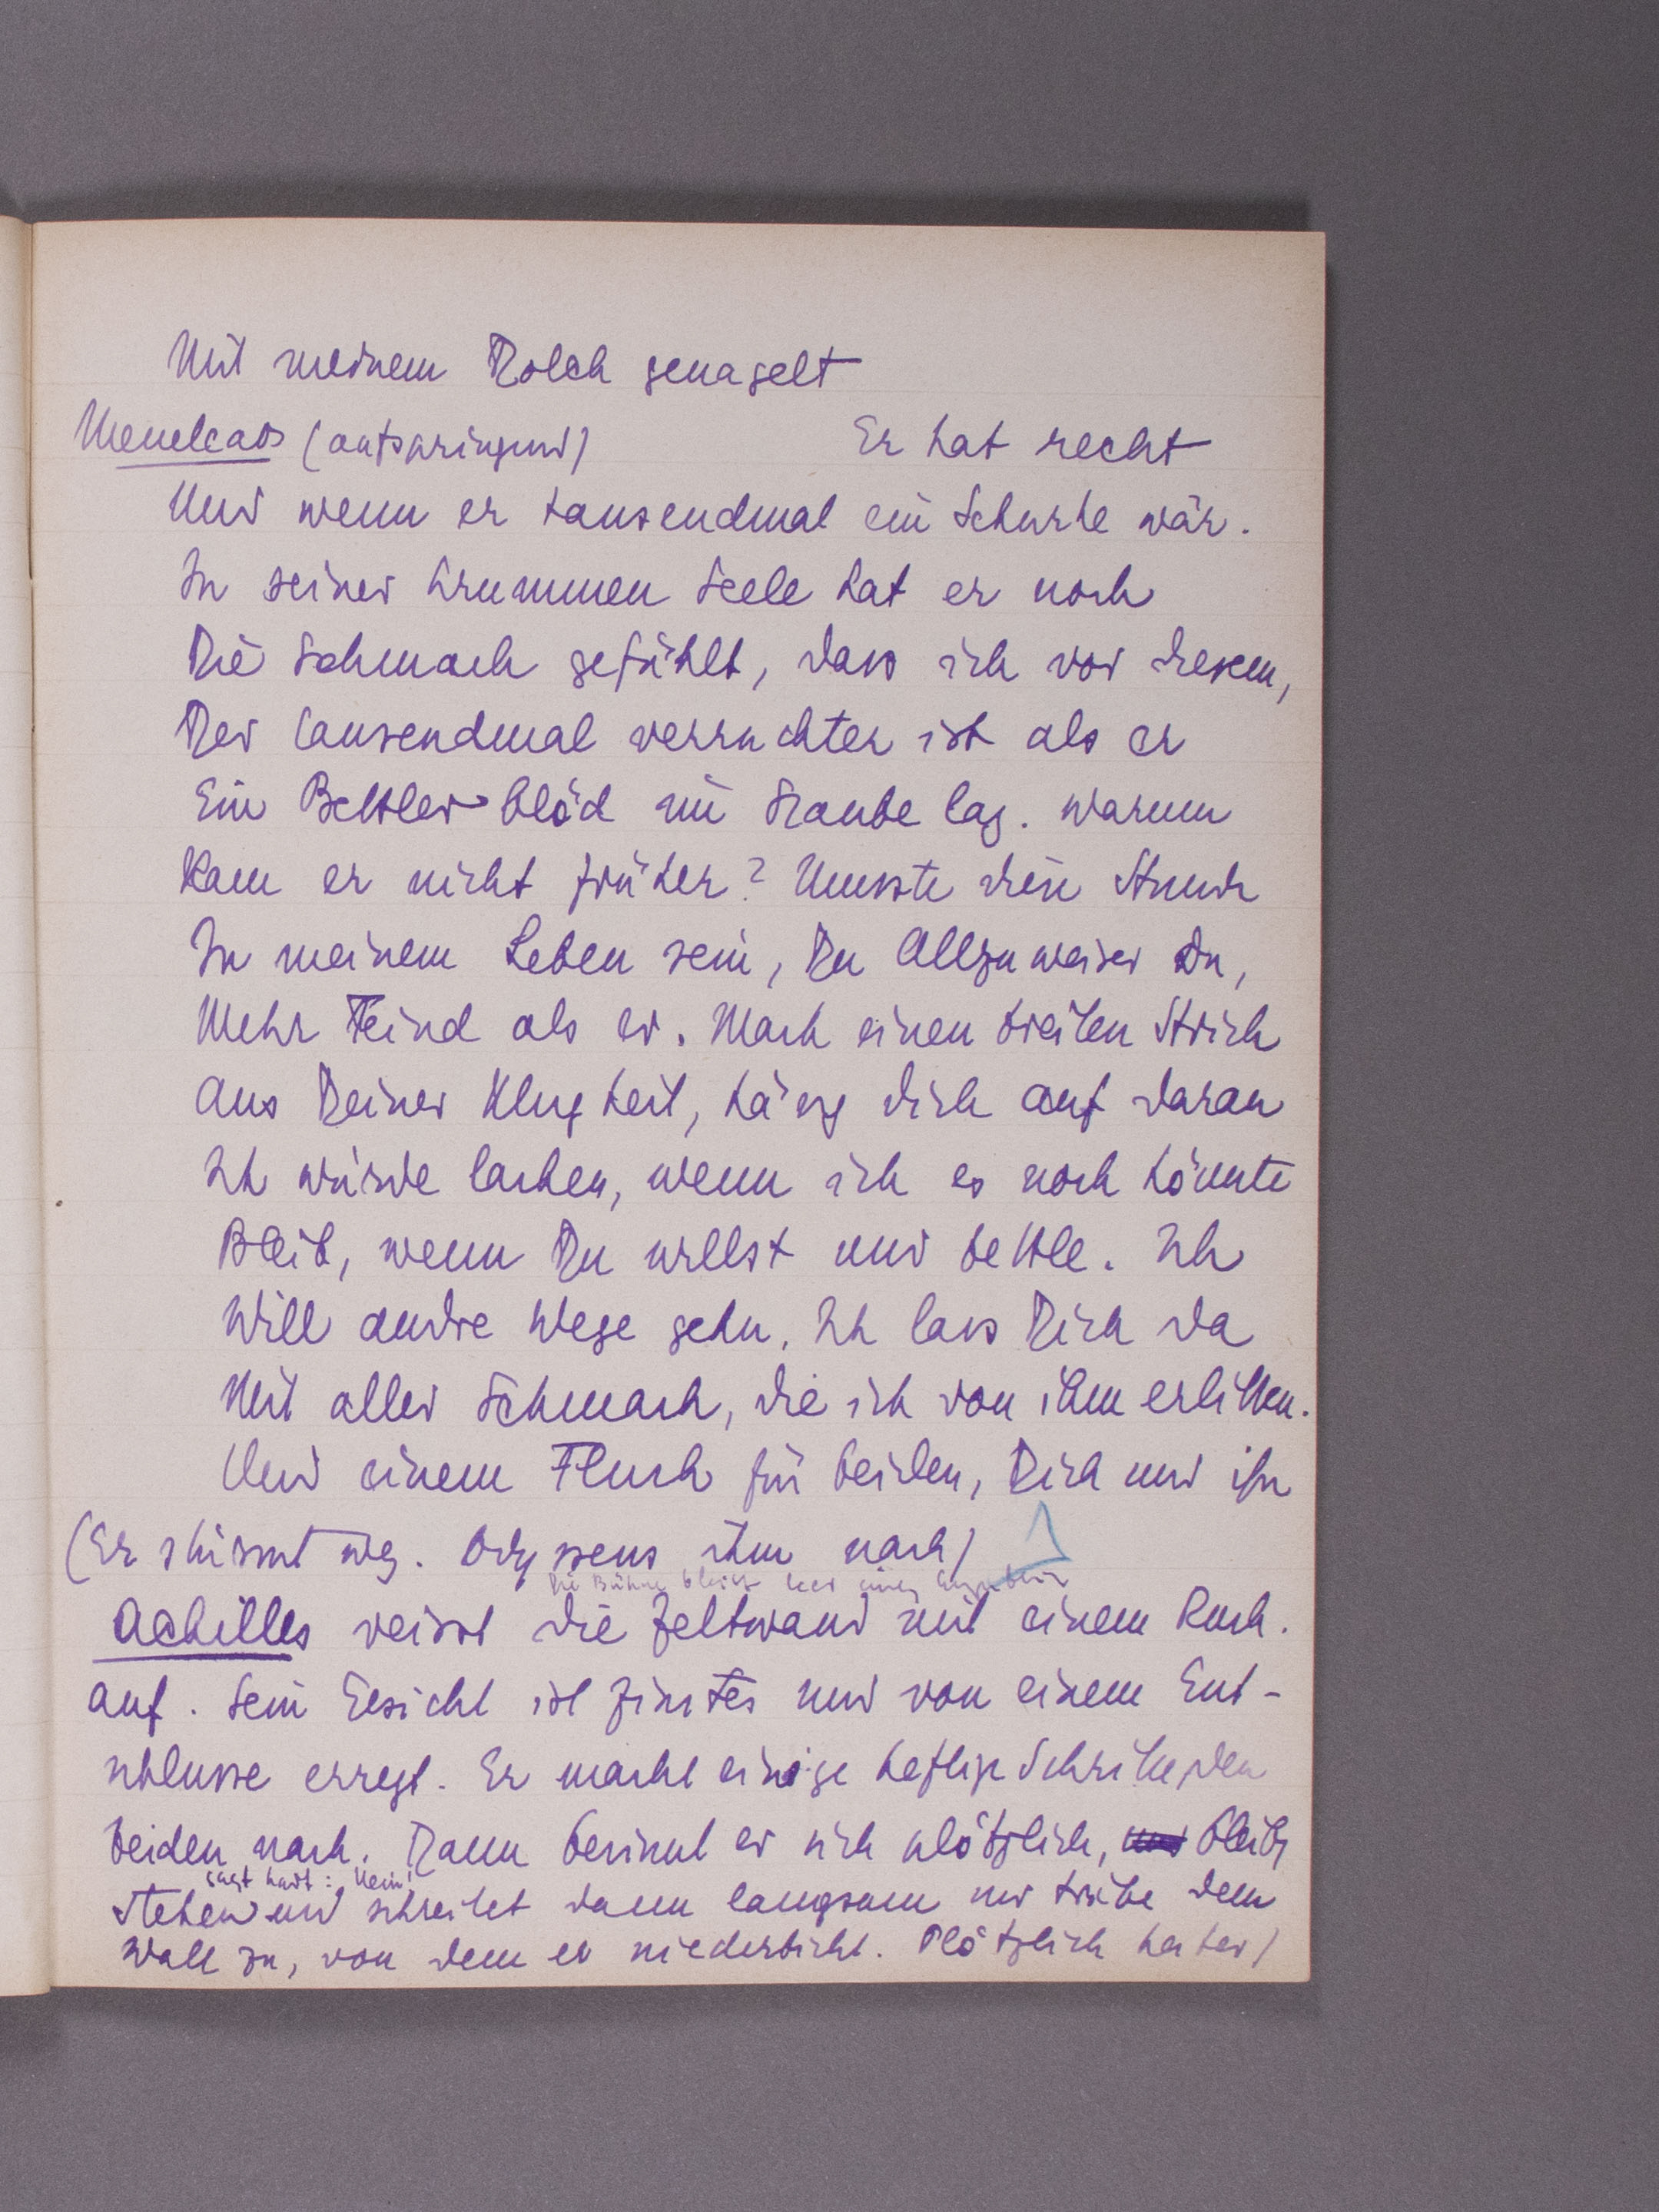 Mit meinem Dolch genagelt
Menelaos (aufspringend) Er hat recht
Und wenn er tausendmal ein Schurke wär.
In seiner krummen Seele hat er noch
Die Schmach gefühlt, dass ich vor diesem,
Der tausendmal verruchter ist als er
Ein Bettler blöd im Staube lag. Warum
Kam er nicht früher? Musste diese Stunde
In meinem Leben sein, Du Allzuweiser Du,
Mehr Feind als er. Mach einen breiten Strich
Aus Deiner Klugheit, häng dich auf daran
Ich würde lachen, wenn ich es noch könnte
Bleib, wenn Du willst und bettle. Ich
Will andre Wege gehn. Ich lass Dich da
Mit aller Schmach, die ich von ihm erlitten.
Und einem Fluch für beiden, Dich und ihn
(Er stürmt weg. Odysseus ihm nach)
Die Bühne bleibt leer einen Augenblick
Achilles reisst die Zeltwand mit einem Ruck.
auf. Sein Gesicht ist finster und von einem Ent-
schlusse erregt. Er macht einige heftige Schritte, den
beiden nach. Dann besinnt er sich plötzlich, und bleibt
sagt hart: Nein!
stehen und schreitet dann langsam und trübe dem
Wall zu, von dem er niedersieht. Plötzlich hebt er)